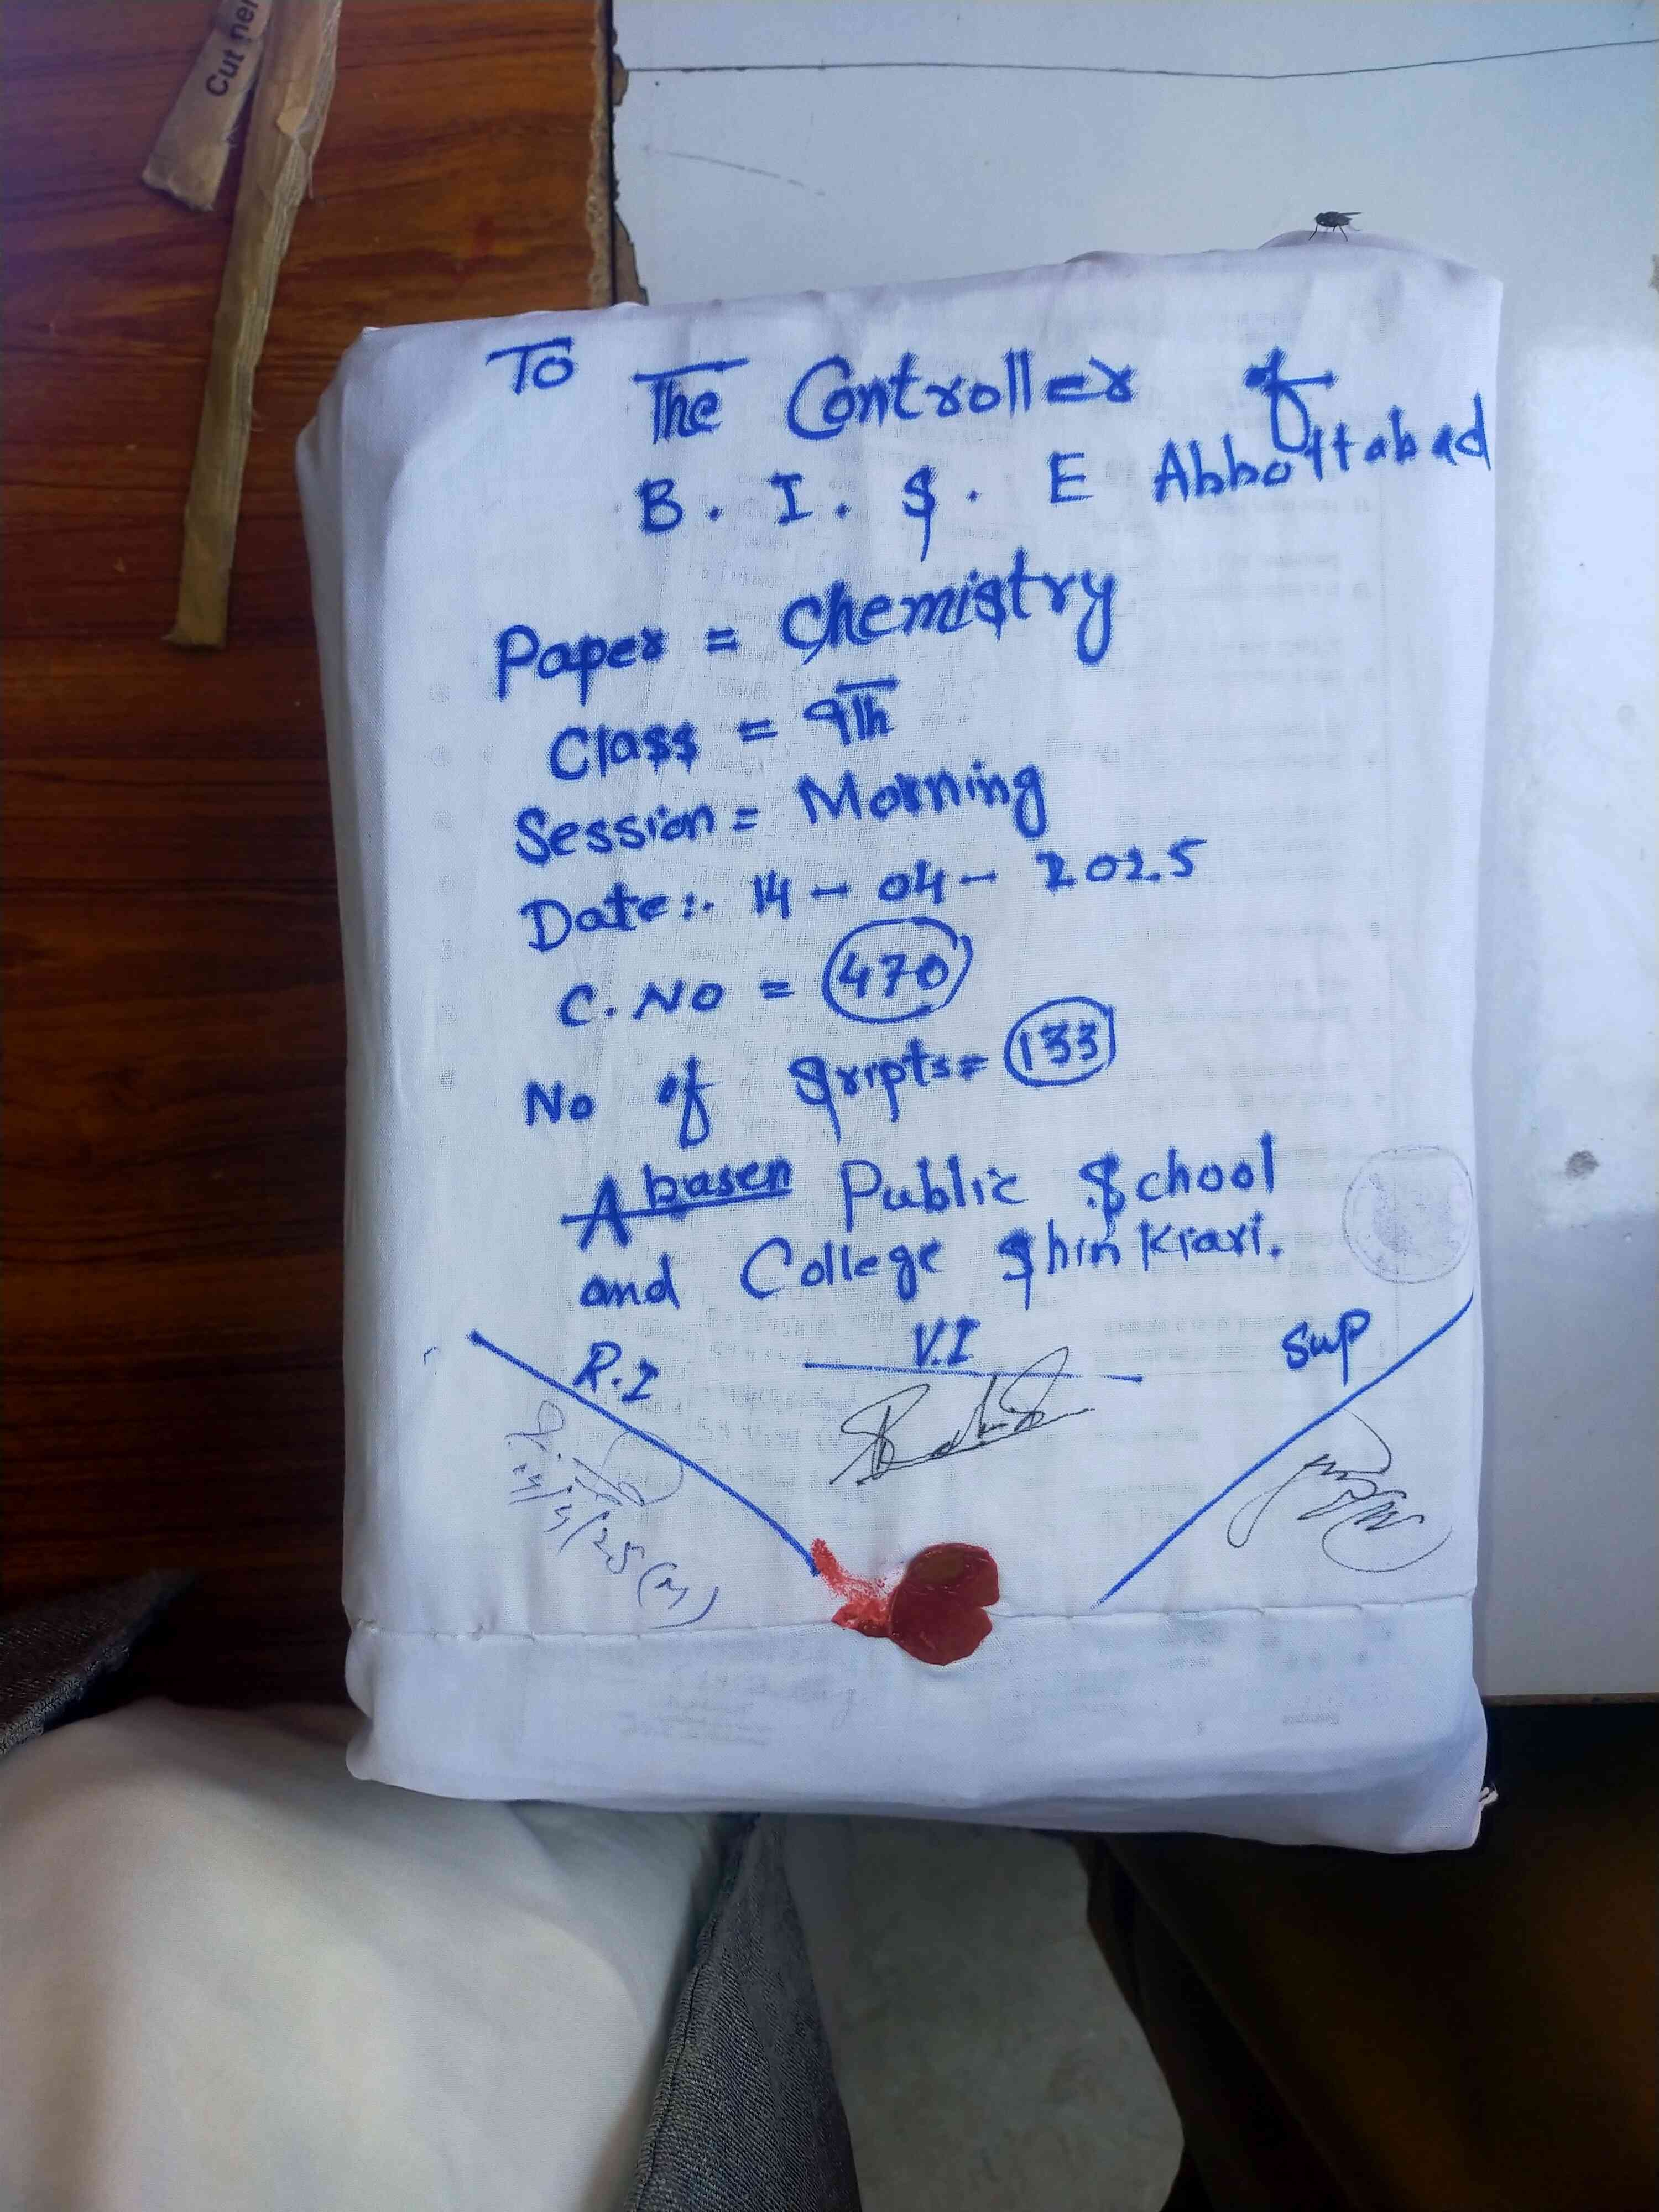 Cut her
To
The Controller of
B. I. S. E Abbottabad
Paper = Chemistry
Class = 9th
Session = Morning
Date:. 14 - 04 - 2025
C. No = 470
No of Sripts = 133
Abasen Public School
and College Shinkiari.
R.I V.I Sup